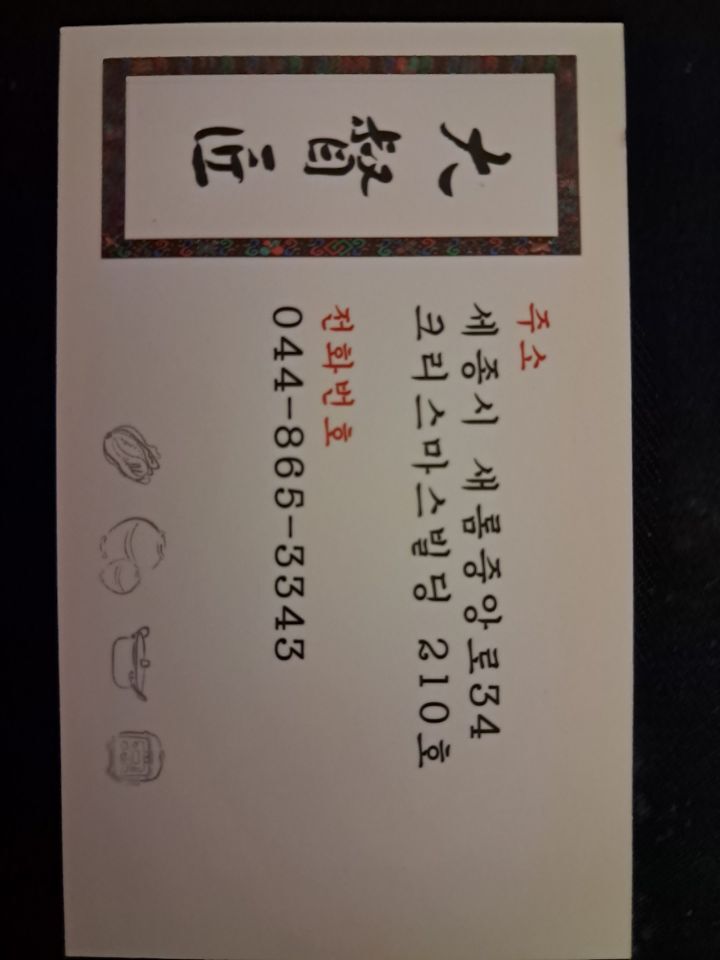 大
주소
세종시 새롬중앙로34
크리스마스빌딩 210호
전화번호
044-865-3343